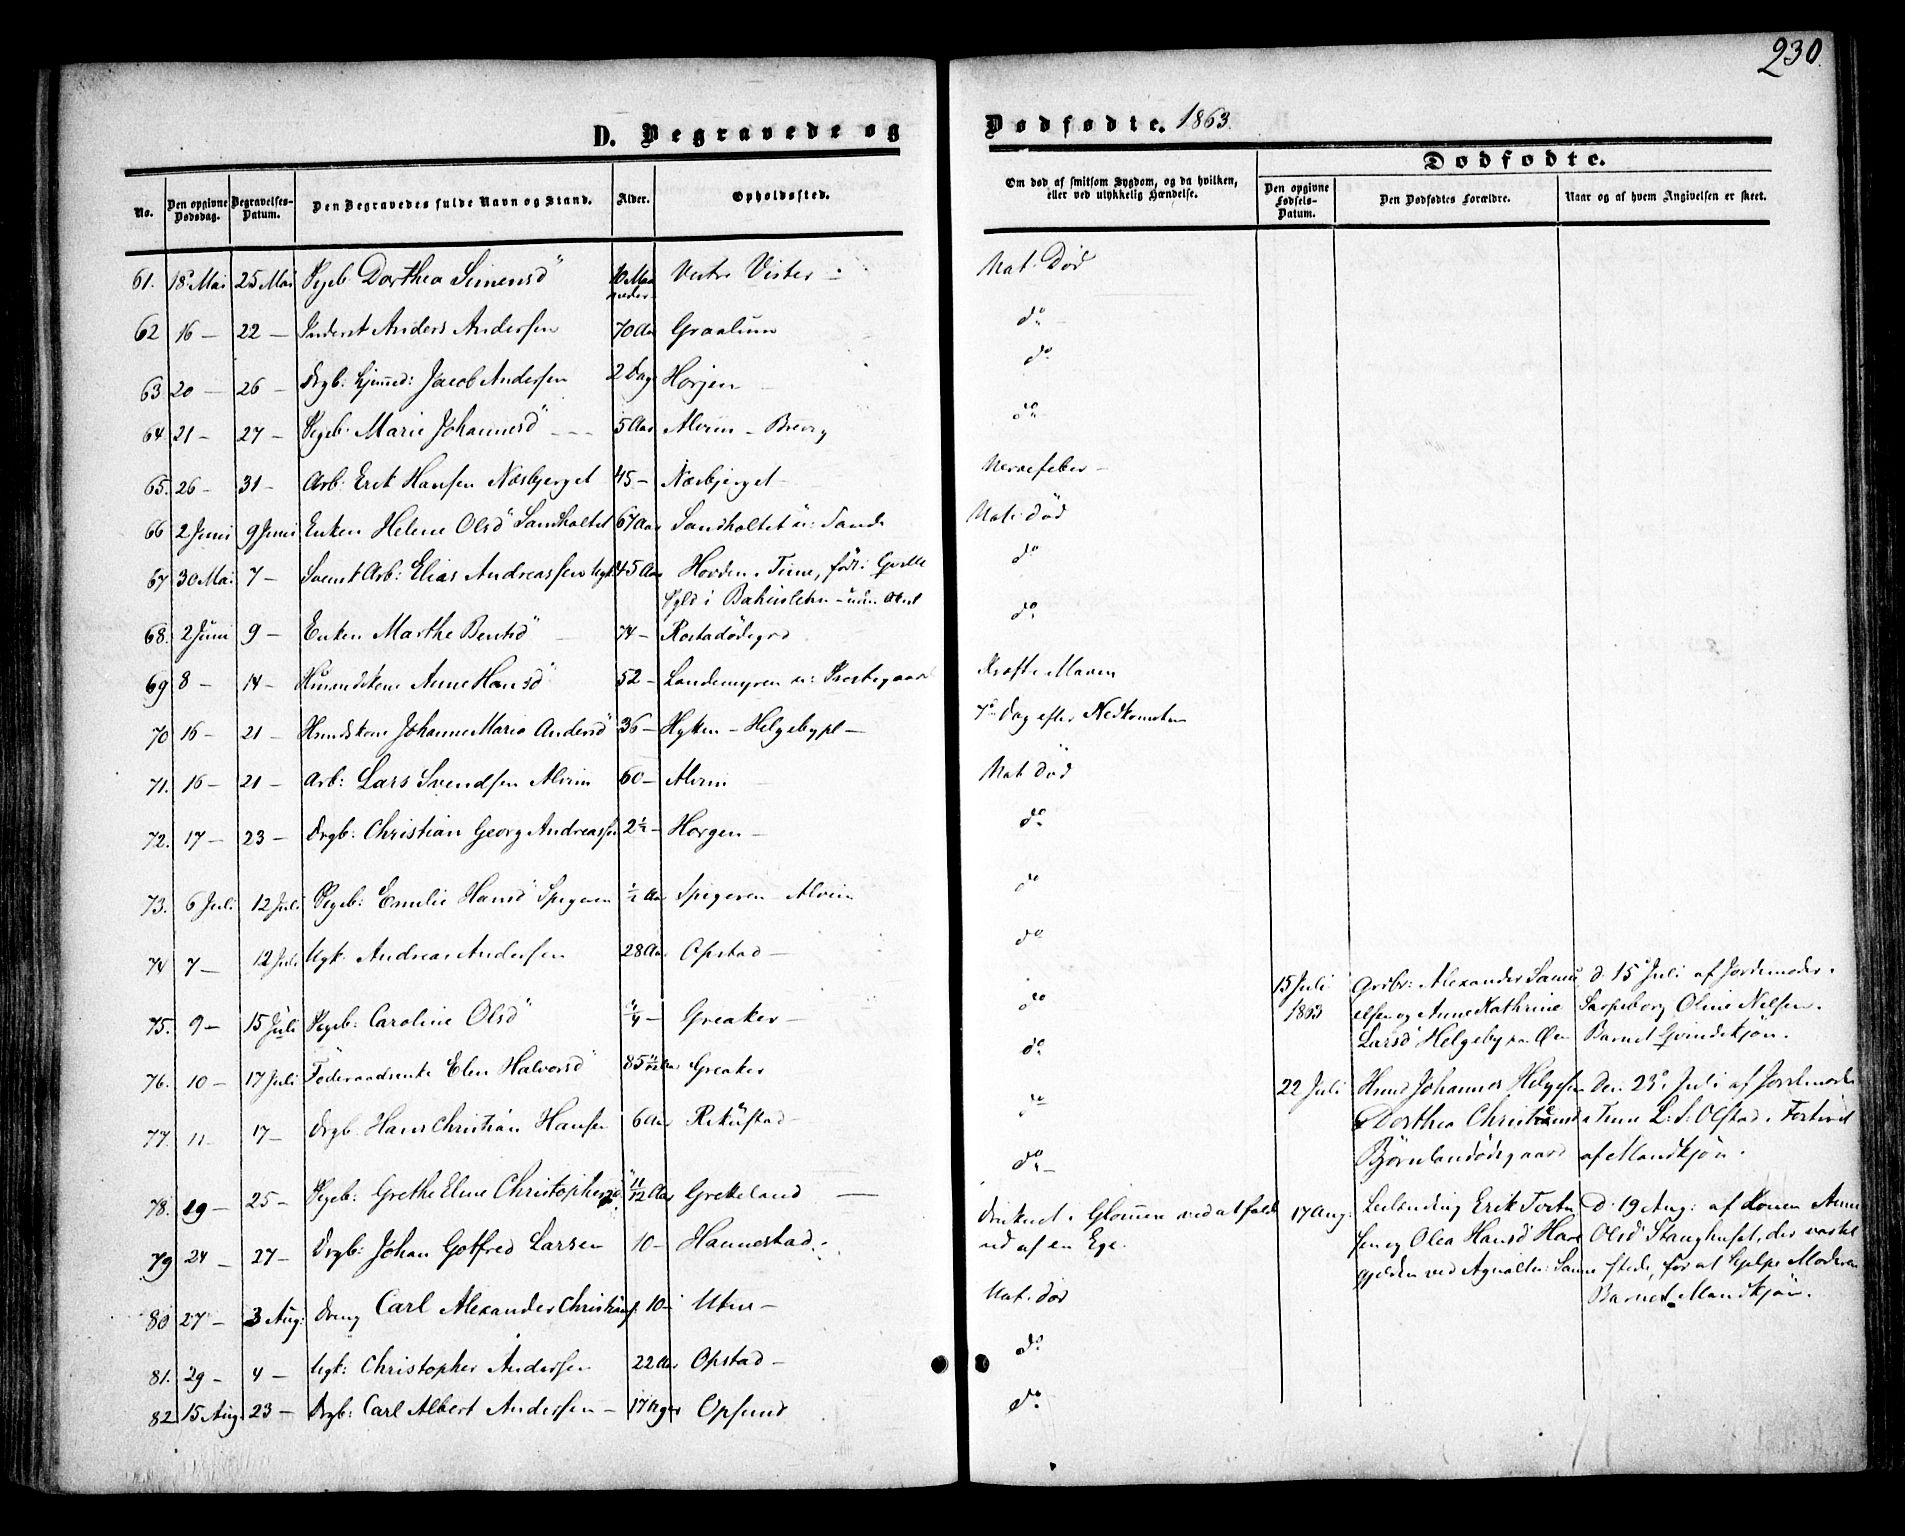 230.
D. Begravede og Dødfødte. 1863.
No. Den opgivne Dødsdag. Begravelses-Datum. Den Begravedes fulde Navn og Stand. Alder. Opholdssted.
Om død af smitsom Sygdom, og da hvilken, eller ved ulykkelig Hændelse.
Dødfødte.
Den opgivne Fødsels-Datum. Den Dødfødtes Forældre. Naar og af hvem Angivelsen er skeet.
61. 18 Mai 25 Mai Pgeb Dorthea Simensd 10 Maaneder Vestre Vister Nat. Død
62 16 — 22 — Inderst Anders Andersen 70 Aar Graalum do
63 20 — 26 — Drgb: hjemmed: Jacob Andersen 2 Dage Horjen do
64 21 — 27 — Pgeb: Marie Johannesd 5 Aar Alvim - Brevig do
65. 26 — 31 — Arb: Erik Hansen Næsbjerget 45 — Næsbjerget Nervefeber —
66 2 Juni 9 Juni Enken Helene Olsd Sandholtet 67 Aar Sandholtet u: Sande Nat. død
67 30 Mai 7 — Svensk Arb: Elias Andreassen Ugk: 45 Aar Hovden i Tune, født i
i Bahuslehn do
68. 2 Juni 9 — Enken Marthe Bentsd 74 — Rostadødegrd do
69 8 — 14 — Husmdskone Anne Hansd 52 — Landemyren u: Kræft i Maven
70 16 — 21 — Hmdskone Johanne Maria Andersd 36 — Hytten - Helgebypl — 7de Dag efter Nedkomsten
71. 16 — 21 — Arb: Lars Svendsen Alvim 60 — Alvim Nat. død
72. 17 — 23 — Drgb: Christian Georg Andreassen 2½ — Horgen — do
73. 6 Juli 12 Juli Pgeb: Emilie Hansd Spigeren ½ Aar Spigeren - Alvim do
74 7 — 12 Juli Ugk. Andreas Andersen 28 Aar Opstad — do
75. 9 — 15 Juli Pgeb: Caroline Olsd ¼ — Greaker — do
76. 10 — 17 Juli Føderaadsenke Elen Halvorsd 85 Greaker do
77. 11 — 17 — Drgb. Hans Christian Hansen 6 Aar Rekustad — do
78. 19 — 25 — Pgeb: Grethe Eline Christophersd 11/12 Aar Greteland — do
79 24 — 27 — Drgb: Johan Gotfred Larsen 10 — Hannestad. druknet i Glommen ved at falde
ud af en Ege.
80 27 — 3 Aug: Dreng Carl Alexander Christians. 10 — Utne — Nat. død
81. 29 — 4 — Ugk: Christopher Andersen 22 Aar Opstad — do
82. 15 Aug. 23 — Drgb: Carl Albert Andersen — 17 Uger Opsund do
15 Juli 1863 Grdbr: Alexander Samuelsen og Anne Kathrine Larsd Helgeby
d. 15 Juli af Jordemoder i Sarpsborg Oline Nilsen. Barnet Qvindekjøn.
22 Juli Hmd Johannes Helgesen Dorthea Christiansd Bjørnlandødegaard
den 23 Juli af Jordmoder i Tune L: S: Olstad i af Mandkjøn.
17 Aug. Leilænding Erik og Olea Hansd ved
D. 19 Aug: af Konen Anne Olsd Stanghuset, der var tilstede, for at hjelpe Moderen Barnet Mandkjøn.